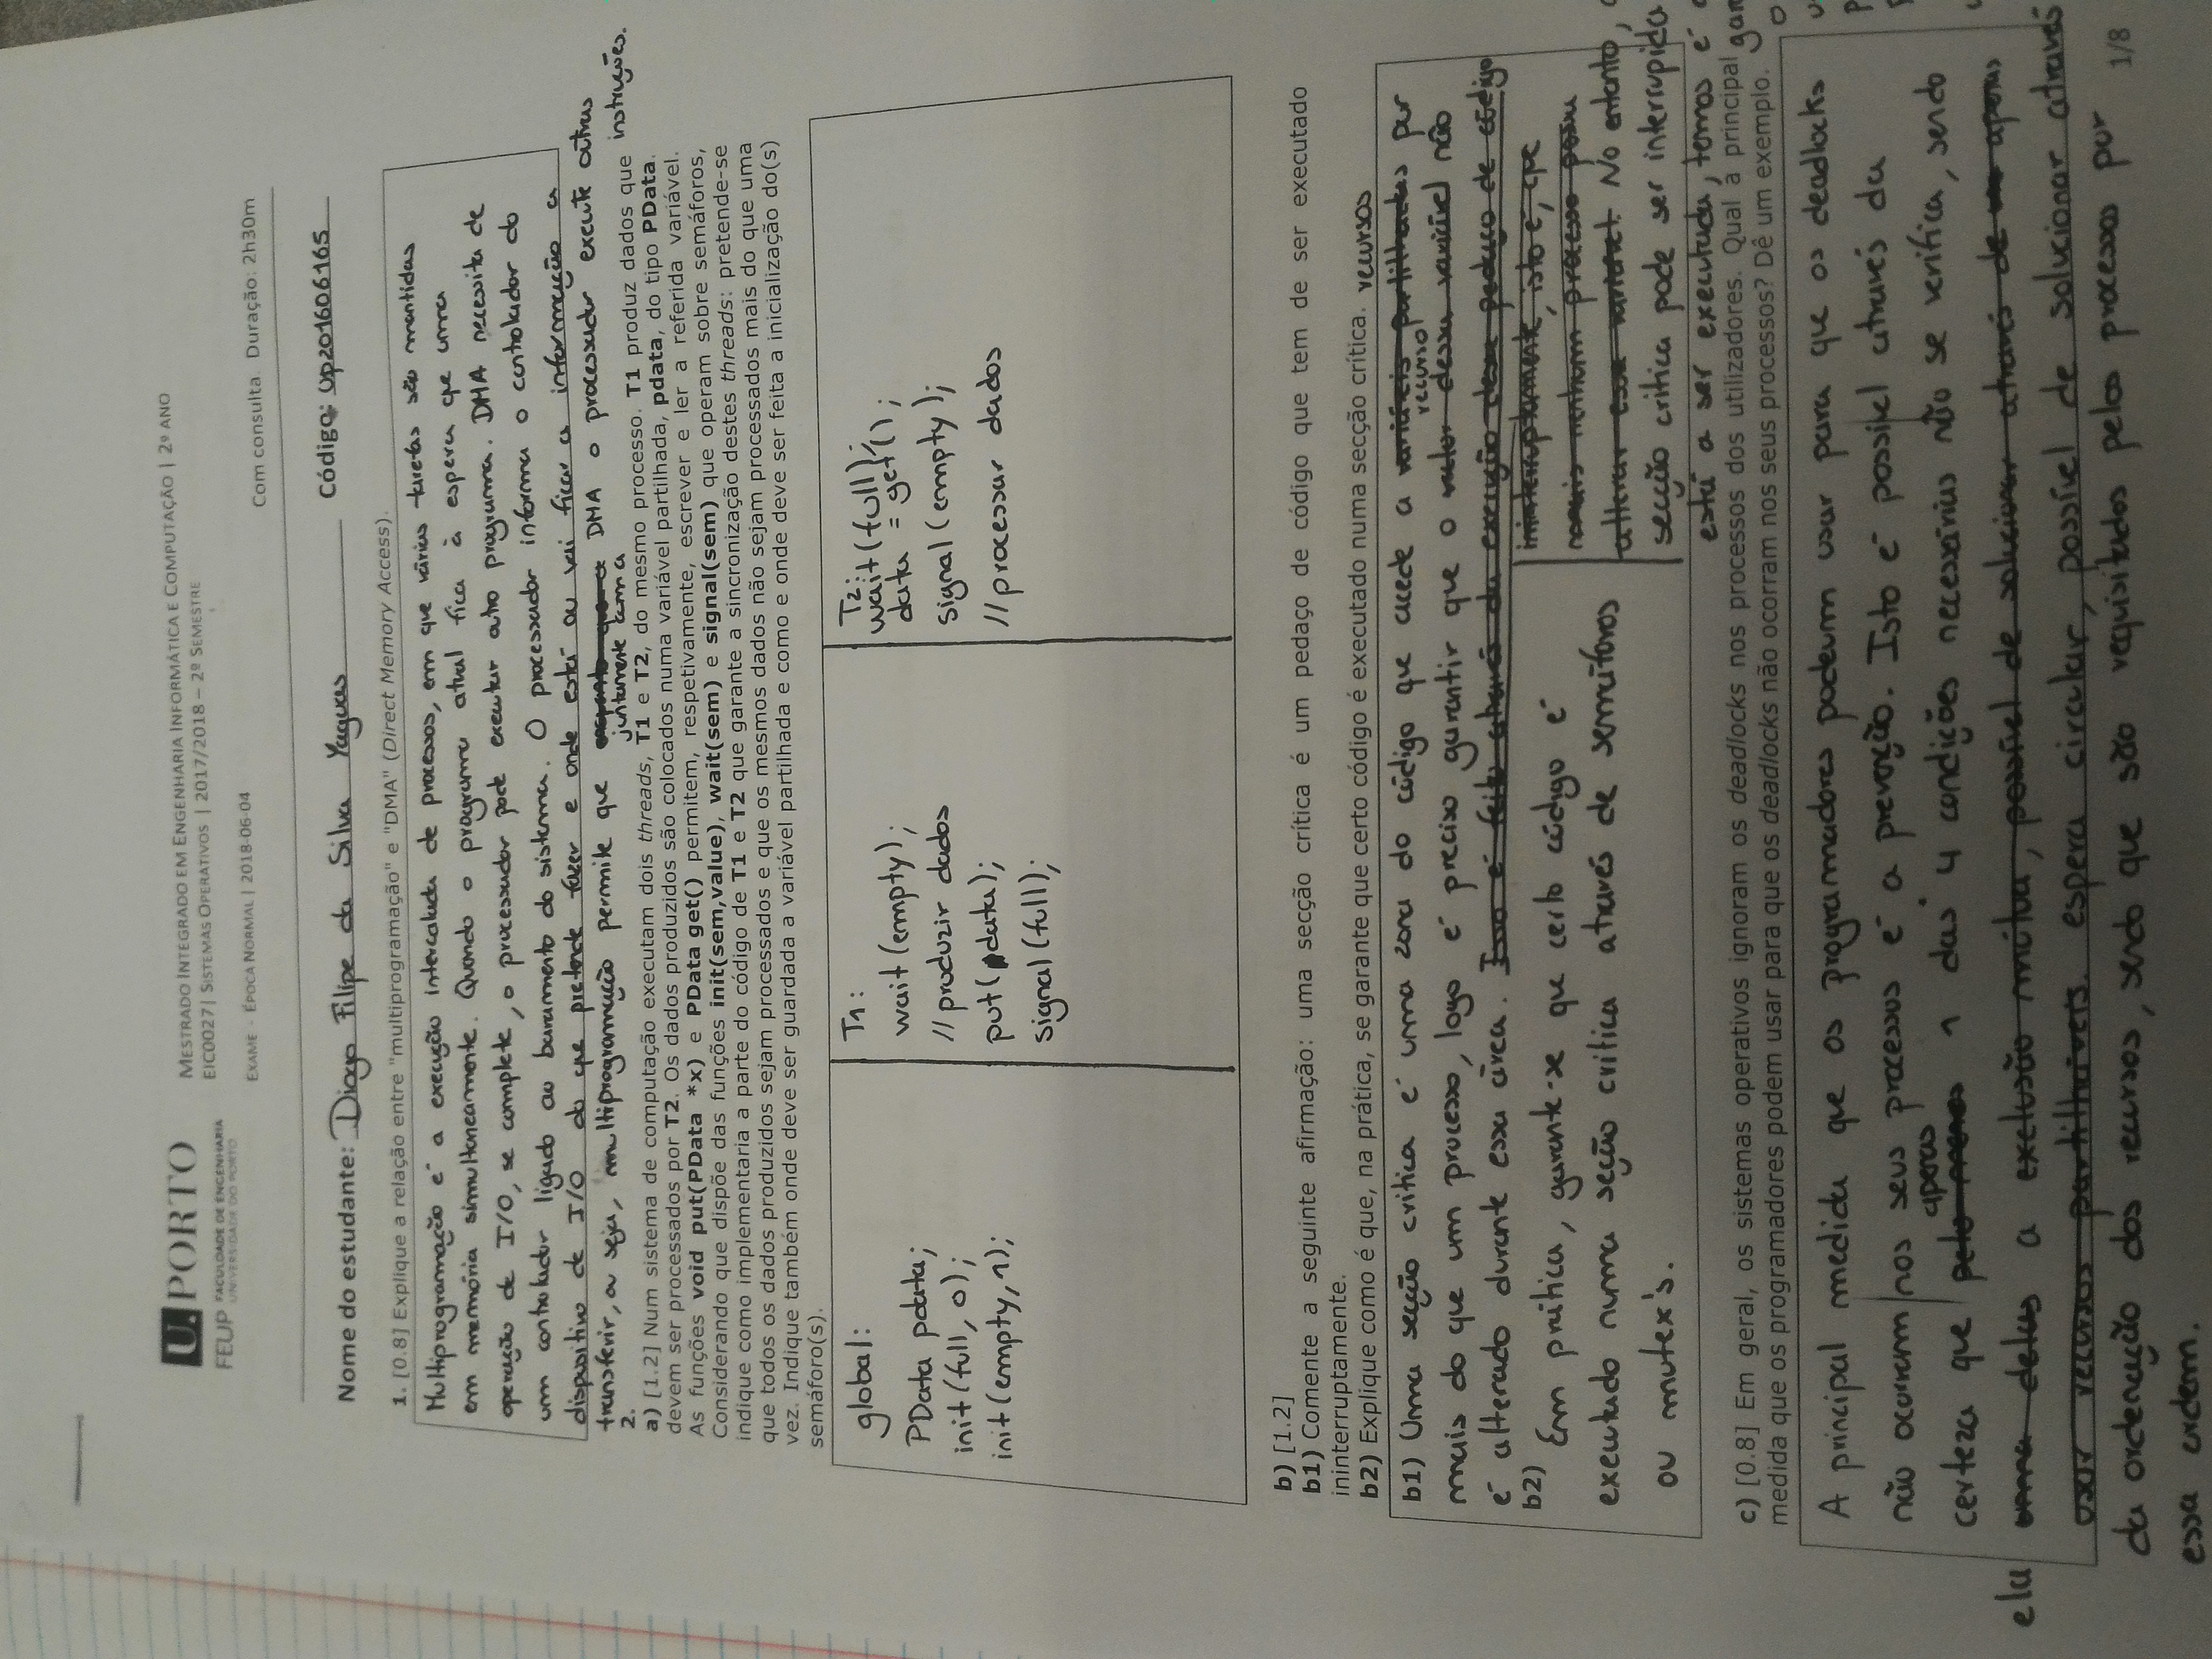 U. PORTO
FEUP FACULDADE DE ENGENHARIA
UNIVERSIDADE DO PORTO
MESTRADO INTEGRADO EM ENGENHARIA INFORMÁTICA E COMPUTAÇÃO | 2º ANO
EIC0027| SISTEMAS OPERATIVOS | 2017/2018 – 2º SEMESTRE
EXAME - ÉPOCA NORMAL | 2018-06-04
Com consulta. Duração: 2h30m
Nome do estudante: Diogo Filipe da Silva Yaguas
Código: up201606165
1. [0.8] Explique a relação entre "multiprogramação" e "DMA" (Direct Memory Access).
Multiprogramação é a execução intercalada de processos, em que várias tarefas são mantidas
em memória simultaneamente. Quando o programa atual fica à espera que uma
operação de I/O, se complete, o processador pode executar outro programa. DMA necessita de
um controlador ligado ao barramento do sistema. O processador informa o controlador do
dispositivo de I/O do que pretende fazer e onde está ou vai ficar a informação a
transferir, ou seja, multiprogramação permite que juntamente com a DMA o processador execute outras
instruções.
2.
a) [1.2] Num sistema de computação executam dois threads, T1 e T2, do mesmo processo. T1 produz dados que
devem ser processados por T2. Os dados produzidos são colocados numa variável partilhada, pdata, do tipo PData.
As funções void put(PData *x) e PData get() permitem, respetivamente, escrever e ler a referida variável.
Considerando que dispõe das funções init(sem,value), wait(sem) e signal(sem) que operam sobre semáforos,
indique como implementaria a parte do código de T1 e T2 que garante a sincronização destes threads: pretende-se
que todos os dados produzidos sejam processados e que os mesmos dados não sejam processados mais do que uma
vez. Indique também onde deve ser guardada a variável partilhada e como e onde deve ser feita a inicialização do(s)
semáforo(s).
global:
PData pdata;
init(full, 0);
init(empty, 1);
T1:
wait(empty);
//produzir dados
put(pdata);
signal(full);
T2:
wait(full);
data = get();
signal(empty);
//processar dados
b) [1.2]
b1) Comente a seguinte afirmação: uma secção crítica é um pedaço de código que tem de ser executado
ininterruptamente.
b2) Explique como é que, na prática, se garante que certo código é executado numa secção crítica.
recursos
b1) Uma secção crítica é uma zona do código que acede a variáveis partilhadas por
recurso
mais do que um processo, logo é preciso garantir que o valor dessa variável não
é alterado durante essa área. Isso é feito através da execução desse pedaço de código
ininterruptamente, isto é, que
mais nenhum processo possa
alterar essa variável. No entanto,
secção crítica pode ser interrupida
está a ser executada, temos é
b2) Em prática, garante-se que certo código é
executado numa secção crítica através de semáforos
ou mutex's.
c) [0.8] Em geral, os sistemas operativos ignoram os deadlocks nos processos dos utilizadores. Qual a principal
medida que os programadores podem usar para que os deadlocks não ocorram nos seus processos? Dê um exemplo.
A principal medida que os programadores podem usar para que os deadlocks
não ocorram nos seus processos é a prevenção. Isto é possível através da
apenas
certeza que pelo menos 1 das 4 condições necessárias não se verifica, sendo
ela uma delas a exclusão mútua, possível de solucionar através de apenas
usar recursos partilháveis. espera circular, possível de solucionar através
da ordenação dos recursos, sendo que são requisitados pelos processos por
essa ordem.
1/8